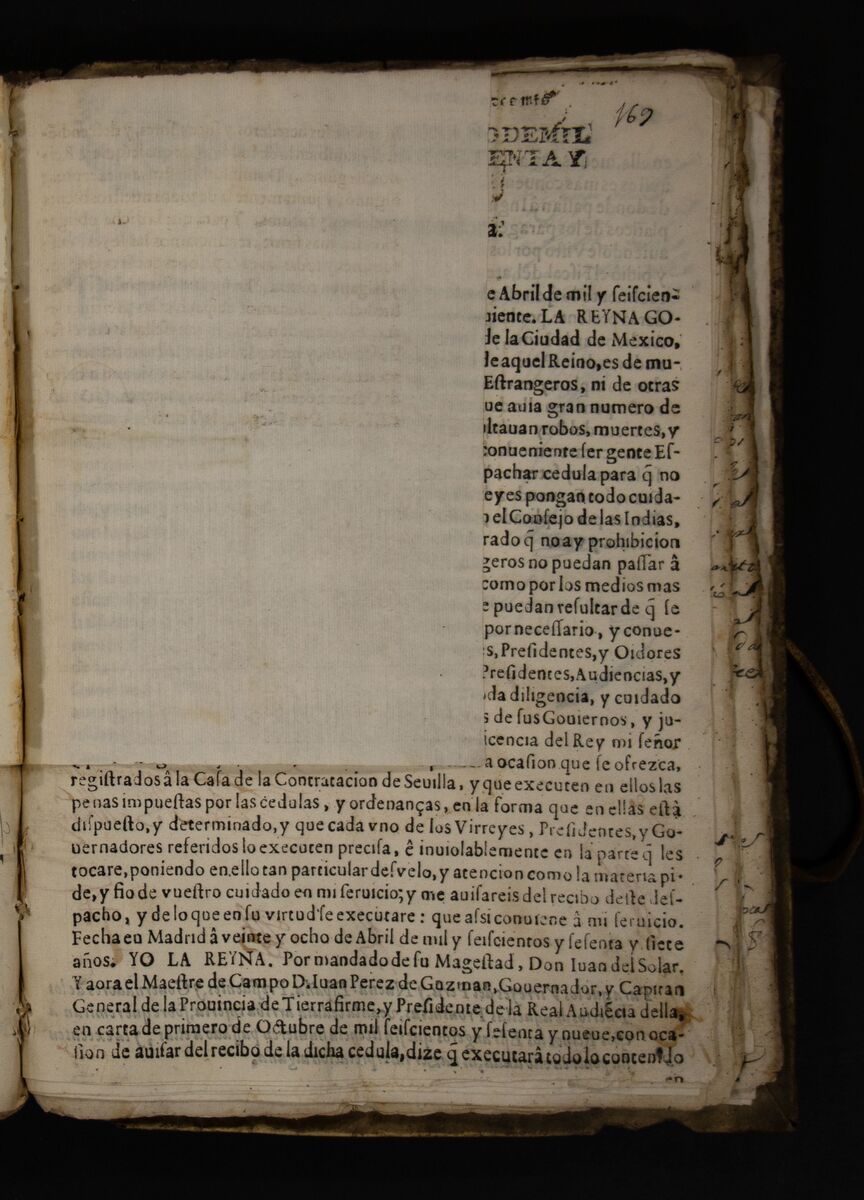 169
ODEMIL
ENTA Y
a.
e Abril de mil y ſeiſcien-
uiente. LA REYNA GO-
de la Ciudad de Mexico,
de aquel Reino, es de mu-
Eſtrangeros, ni de otras
ue auia gran numero de
ultauan robos, muertes, y
conueniente ſer gente Eſ-
pachar cedula para q̃ no
eyes pongan todo cuida-
o el Conſejo de las Indias,
rado q̃ no ay prohibicion
geros no puedan paſſar â
como por los medios mas
e puedan reſultar de q̃ ſe
por neceſſario, y conue-
s, Preſidentes, y Oidores
Preſidentes, Audiencias, y
oda diligencia, y cuidado
s de ſus Gouiernos, y ju-
icencia del Rey mi ſeñor
a ocaſion que ſe ofrezca,
regiſtrados â la Caſa de la Contratacion de Seuilla, y que executen en ellos las
penas impueſtas por las cedulas, y ordenanças, en la forma que en ellas eſtà
diſpueſto, y determinado, y que cada vno de los Virreyes, Preſidentes, y Go-
uernadores referidos lo executen preciſa, ê inuiolablemente en la parte q̃ les
tocare, poniendo en ello tan particular deſvelo, y atencion como la materia pi-
de, y fio de vueſtro cuidado en mi ſeruicio; y me auiſareis del recibo deſte deſ-
pacho, y de lo que en ſu virtud ſe executare: que aſsi conuiene â mi ſeruicio.
Fecha en Madrid â veinte y ocho de Abril de mil y ſeiſcientos y ſeſenta y ſiete
años. YO LA REYNA. Por mandado de ſu Mageſtad, Don Iuan del Solar.
Y aora el Maeſtre de Campo D. Iuan Perez de Guzman, Gouernador, y Capitan
General de la Prouincia de Tierrafirme, y Preſidente de la Real Audiẽcia della,
en carta de primero de Octubre de mil ſeiſcientos y ſeſenta y nueue, con oca-
ſion de auiſar del recibo de la dicha cedula, dize q̃ executarâ todo lo contenido
en